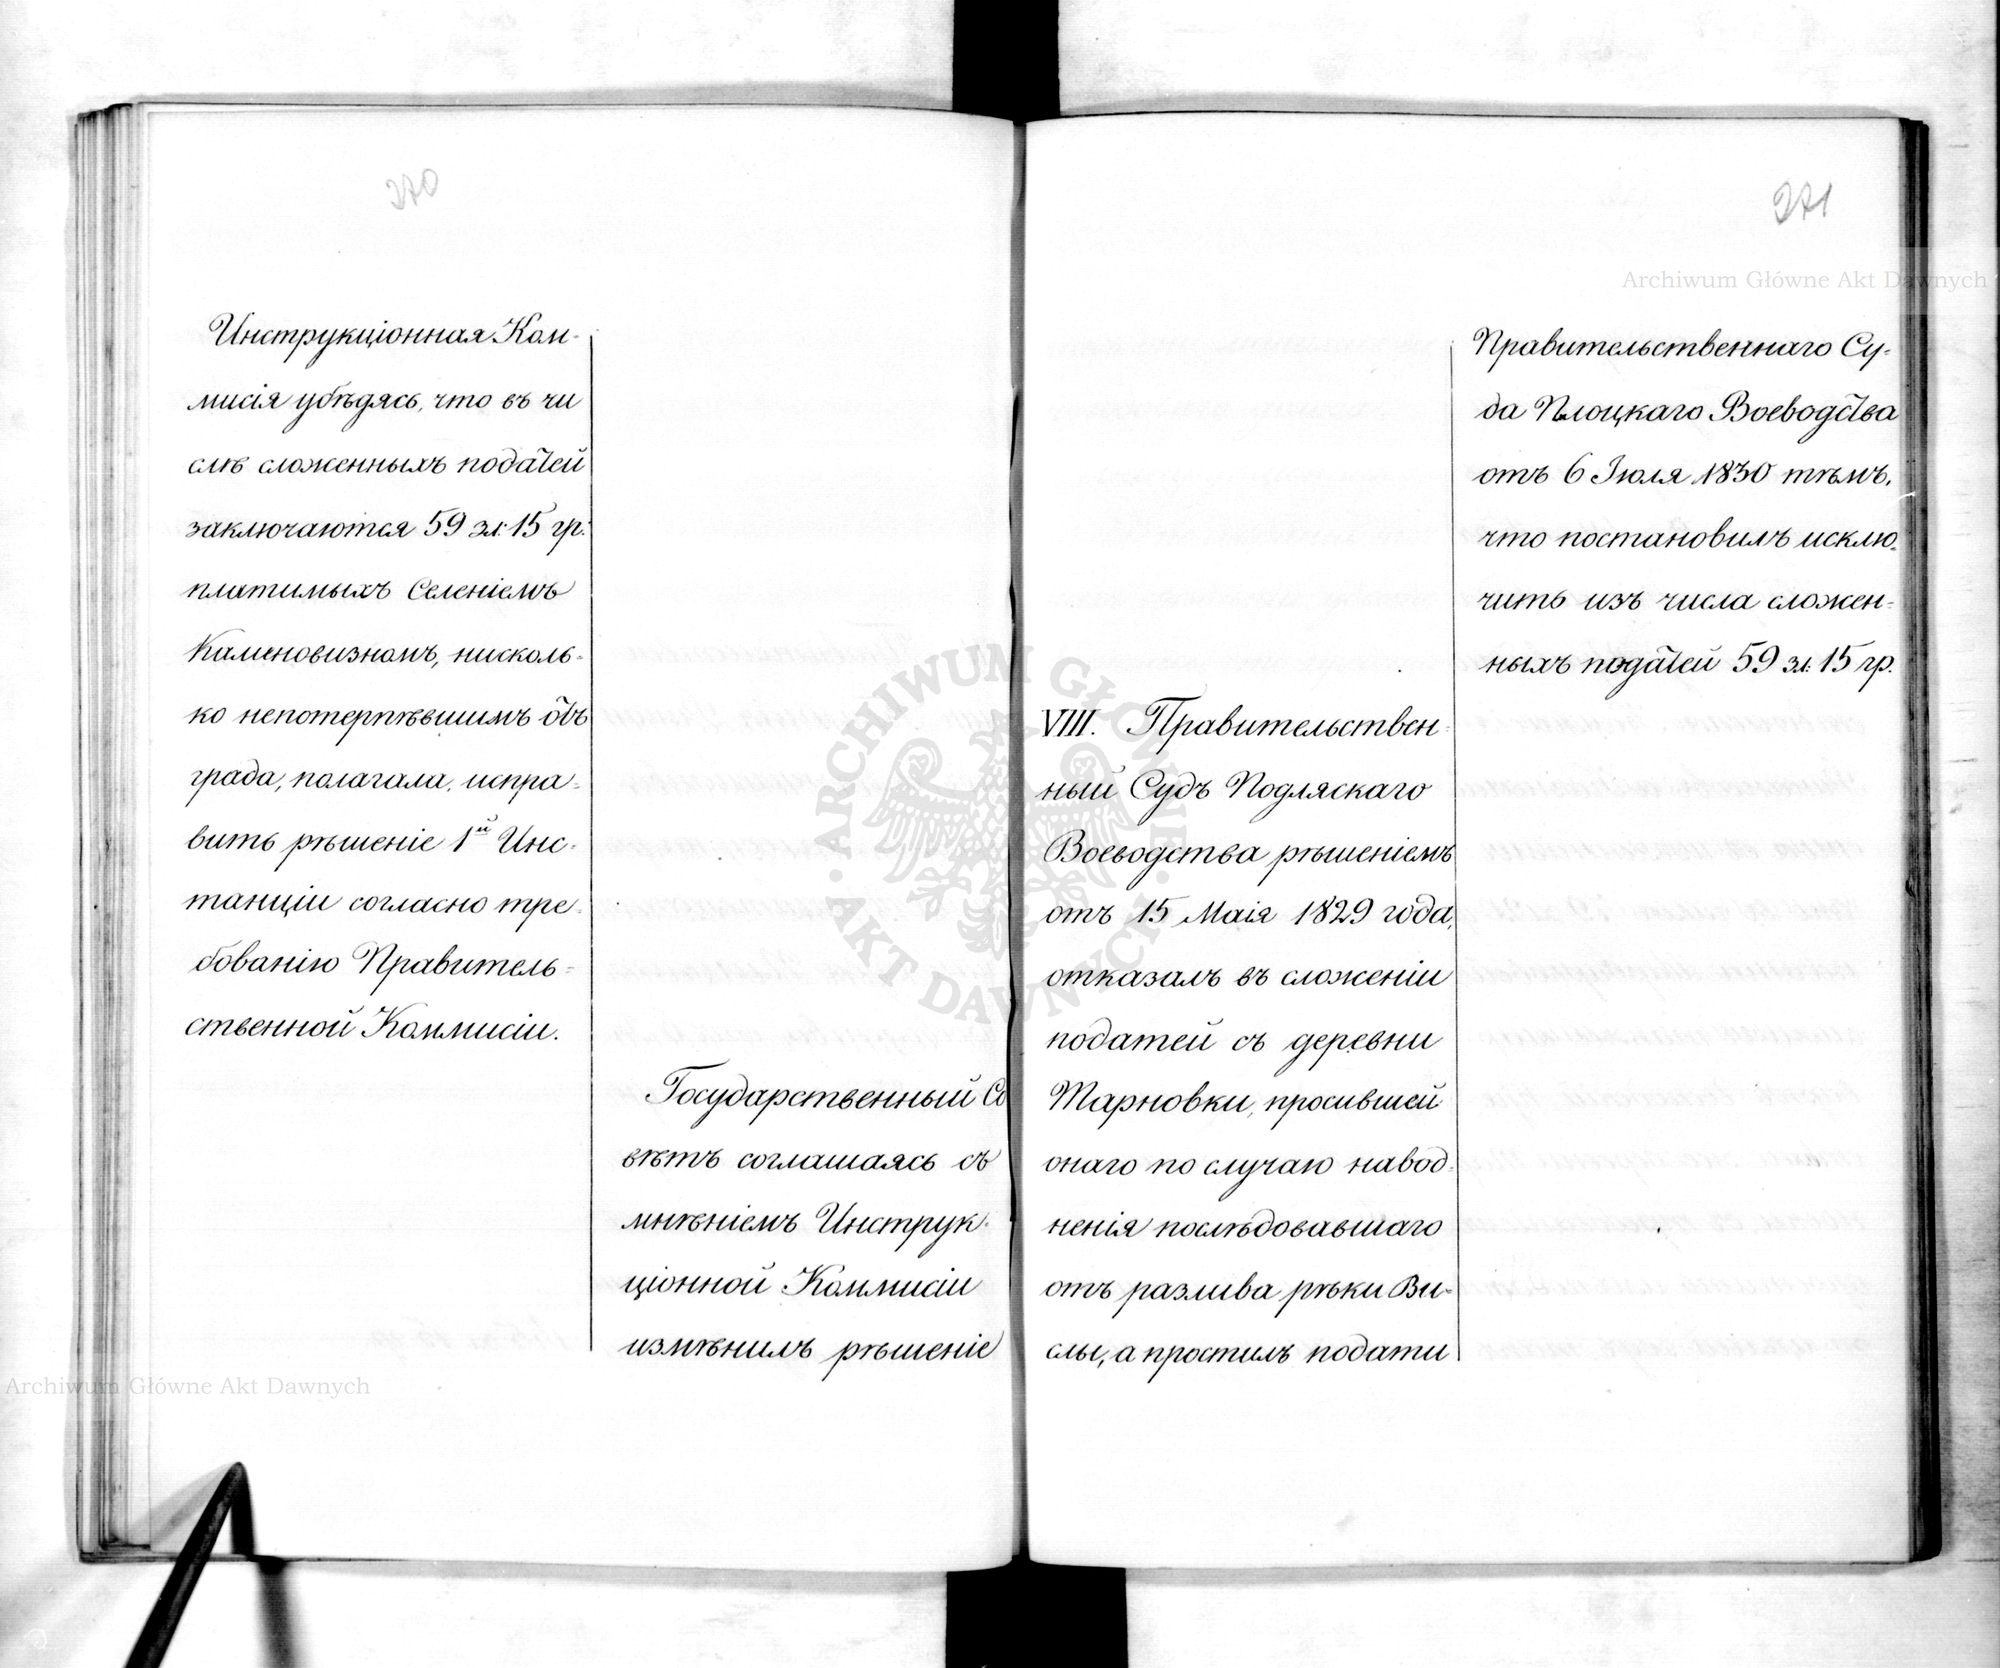 270
Инструкціонная Ком-
мисія убѣдясь, что въ чи
слѣ сложенныхъ податей
заключаются 59 зл: 15 гр:
платимыхъ Селеніемъ
Каменовизномъ, нисколь-
ко непотерпѣвшимъ отъ
града, полагала, испра-
вить рѣшеніе 1й Инс-
танціи согласно тре-
бованію Правитель-
ственной Коммисіи.
Государственный Со
вѣтъ соглашаясь съ
мнѣніемъ Инструк-
ціонной Коммисіи
измѣнилъ рѣшеніе
271
Правительственнаго Су-
да Плоцкаго Воеводства
отъ 6 Іюля 1830 тѣмъ,
что постановилъ исклю-
чить изъ числа сложен-
ныхъ податей 59 зл: 15 гр.
VIII. Правительствен-
ный Судъ Подляскаго
Воеводства рѣшеніемъ
отъ 15 Маія 1829 года,
отказалъ въ сложеніи
податей съ деревни
Тарновки, просившей
онаго по случаю навод-
ненія послѣдовавшаго
отъ разлива рѣки Ви-
слы, а простилъ подати
Archiwum Główne Akt Dawnych
Archiwum Główne Akt Dawnych
ARCHIWUM GŁÓWNE
AKT DAWNYCH